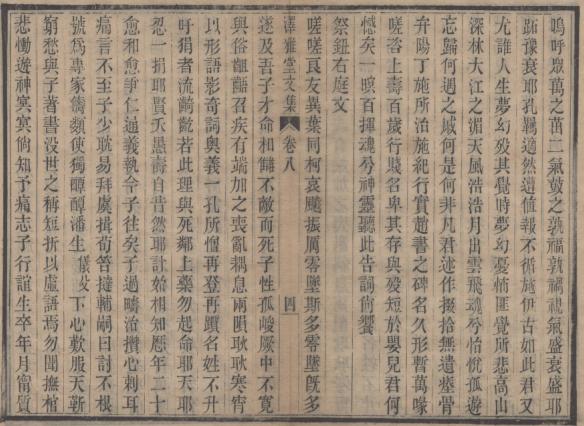 嗚呼眾萬之苗二氣鼓之孰福孰禍視氣盛衰盛耶
跖豫衰耶孔羈適然遭值報不循施伊古如此君又
尤誰人生夢幻歿其覺時夢幻憂悄匪覺所悲高山
深林大江之湄天風浩浩月出雲飛魂兮怡悅孤遊
忘歸何遇之戚何是何非凡君述作掇拾無遺塟骨
弁陽丁施所治施紀行實趙書之碑名久形暫萬喙
嗟咨上壽百歲行賤名卑其存與殁短於嬰兒君何
憾矣一暝百揮魂兮神靈聽此告詞尚饗
祭鈕右庭文
嗟嗟良友異葉同柯哀飈振厲零墜斯多零墜旣多
澤雅堂文集 卷八 四
遂及吾子才命相讎不敵而死子性孤峻厥中不寬
與俗齟齬召疾有端加之喪亂耦息兩隕耿耿寒宵
以形語影奇詞奧義一孔所憎再登再躓名姓不升
吁狷者流齮齕若此理與死鄰上藥勿起命耶天耶
忍一捐耶賢夭愚壽自昔然耶計始相知歷年二十
愈和愈爭仁通義執令子往矣子過疇治攢心刺耳
痛言不至子少耽易拜虞揖荀笞撻輔嗣曰討不根
號爲專家儔類使獨譚譚潘生儀皮下心歎服天靳
窮愁與子著書没世之稱短折以虛語焉勿聞撫棺
悲慟遊神寞寞倘知予痛志子行誼生卒年月甯質